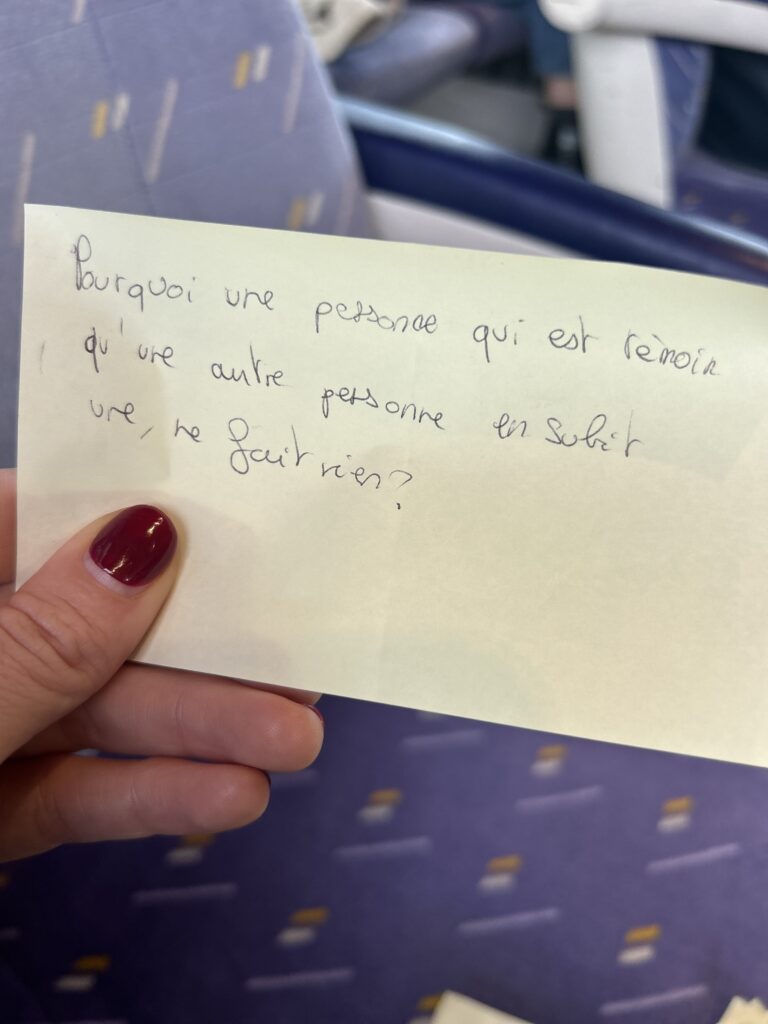 Pourquoi une personne qui est témoin
qu'une autre personne en subit
une, ne fait rien?